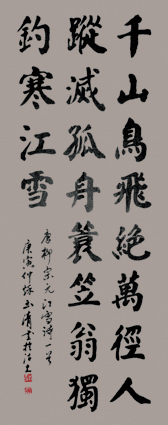 千山鳥飛絕萬徑人
蹤滅孤舟蓑笠翁獨
釣寒江雪
唐柳宗元江雪詩一首
庚寅仲秋